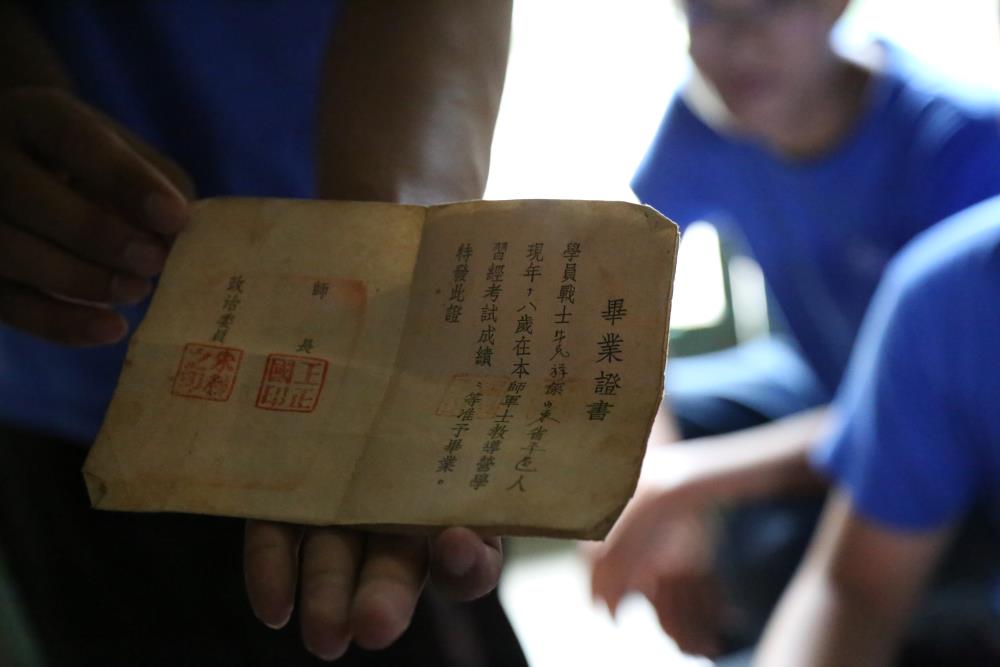 畢業證書
學員戰士牛民祥係山東省平邑人
現年 八歲在本師軍士教導營學
習經考試成績 等准予畢業。
特發此證
師 長
王正國印
政治委員